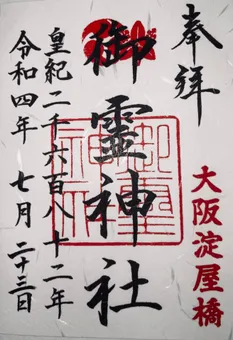 奉拝
大阪淀屋橋
御霊神社
御霊神社
皇紀二千六百八十二年
令和四年 七月 二十三日